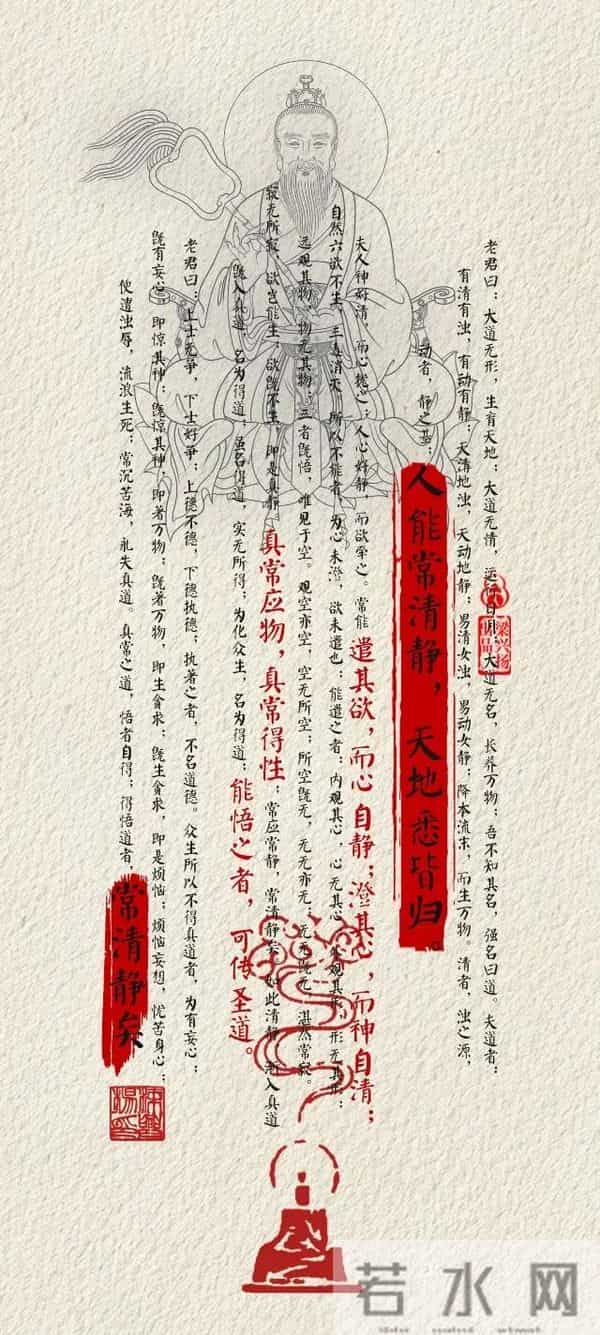 老君曰：大道无形，生育天地；大道无情，运行日月；大道无名，长养万物；吾不知其名，强名曰道。夫道者：
有清有浊，有动有静；天清地浊，天动地静；男清女浊，男动女静；降本流末，而生万物。清者，浊之源，
动者，静之基；人能常清静，天地悉皆归
夫人神好清，而心扰之；人心好静，而欲牵之。常能遣其欲，而心自静；澄其心，而神自清；
自然六欲不生，三毒消灭。所以不能者，为心未澄，欲未遣也；能遣之者：内观其心，心无其心；外观其形，形无其形；
远观其物，物无其物；三者既悟，唯见于空。观空亦空，空无所空；所空既无，无无亦无；无无既无，湛然常寂。
寂无所寂，欲岂能生；欲既不生，即是真静。真常应物，真常得性；常应常静，常清静矣。如此清静，渐入真道
既入真道，名为得道；虽名得道，实无所得；为化众生，名为得道；能悟之者，可传圣道。
老君曰：上士无争，下士好争；上德不德，下德执德；执著之者，不名道德。众生所以不得真道者，为有妄心；
既有妄心，即惊其神；既惊其神，即著万物；既著万物，即生贪求；既生贪求，即是烦恼；烦恼妄想，忧苦身心；
使遭浊辱，流浪生死；常沉苦海，永失真道。真常之道，悟者自得；得悟道者，常清静矣
梁兴扬
若水网